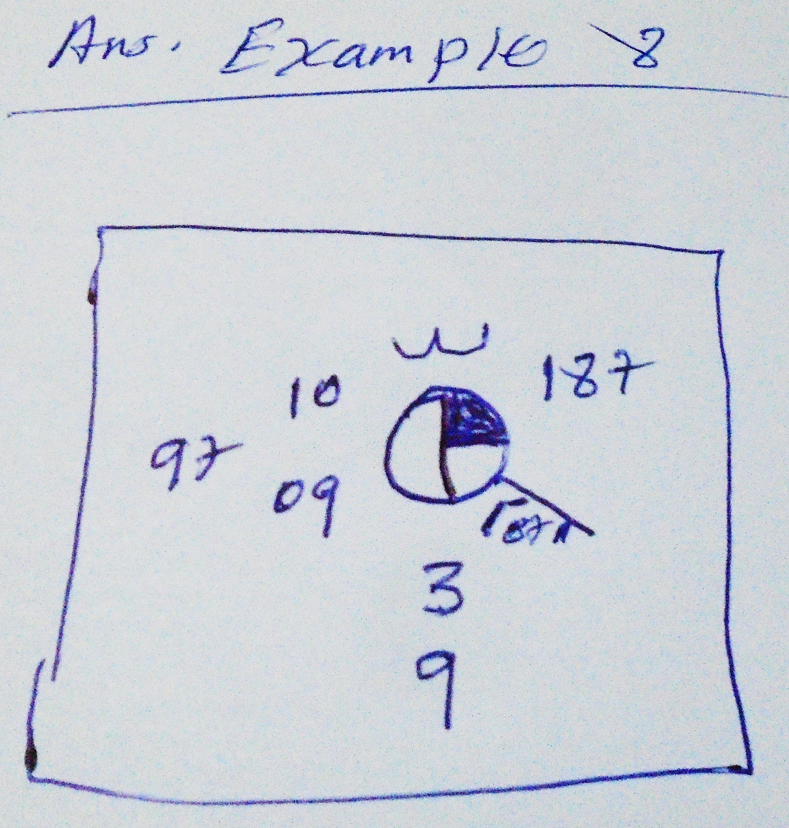 Ans. Example 8
10 187
97
09
3
9